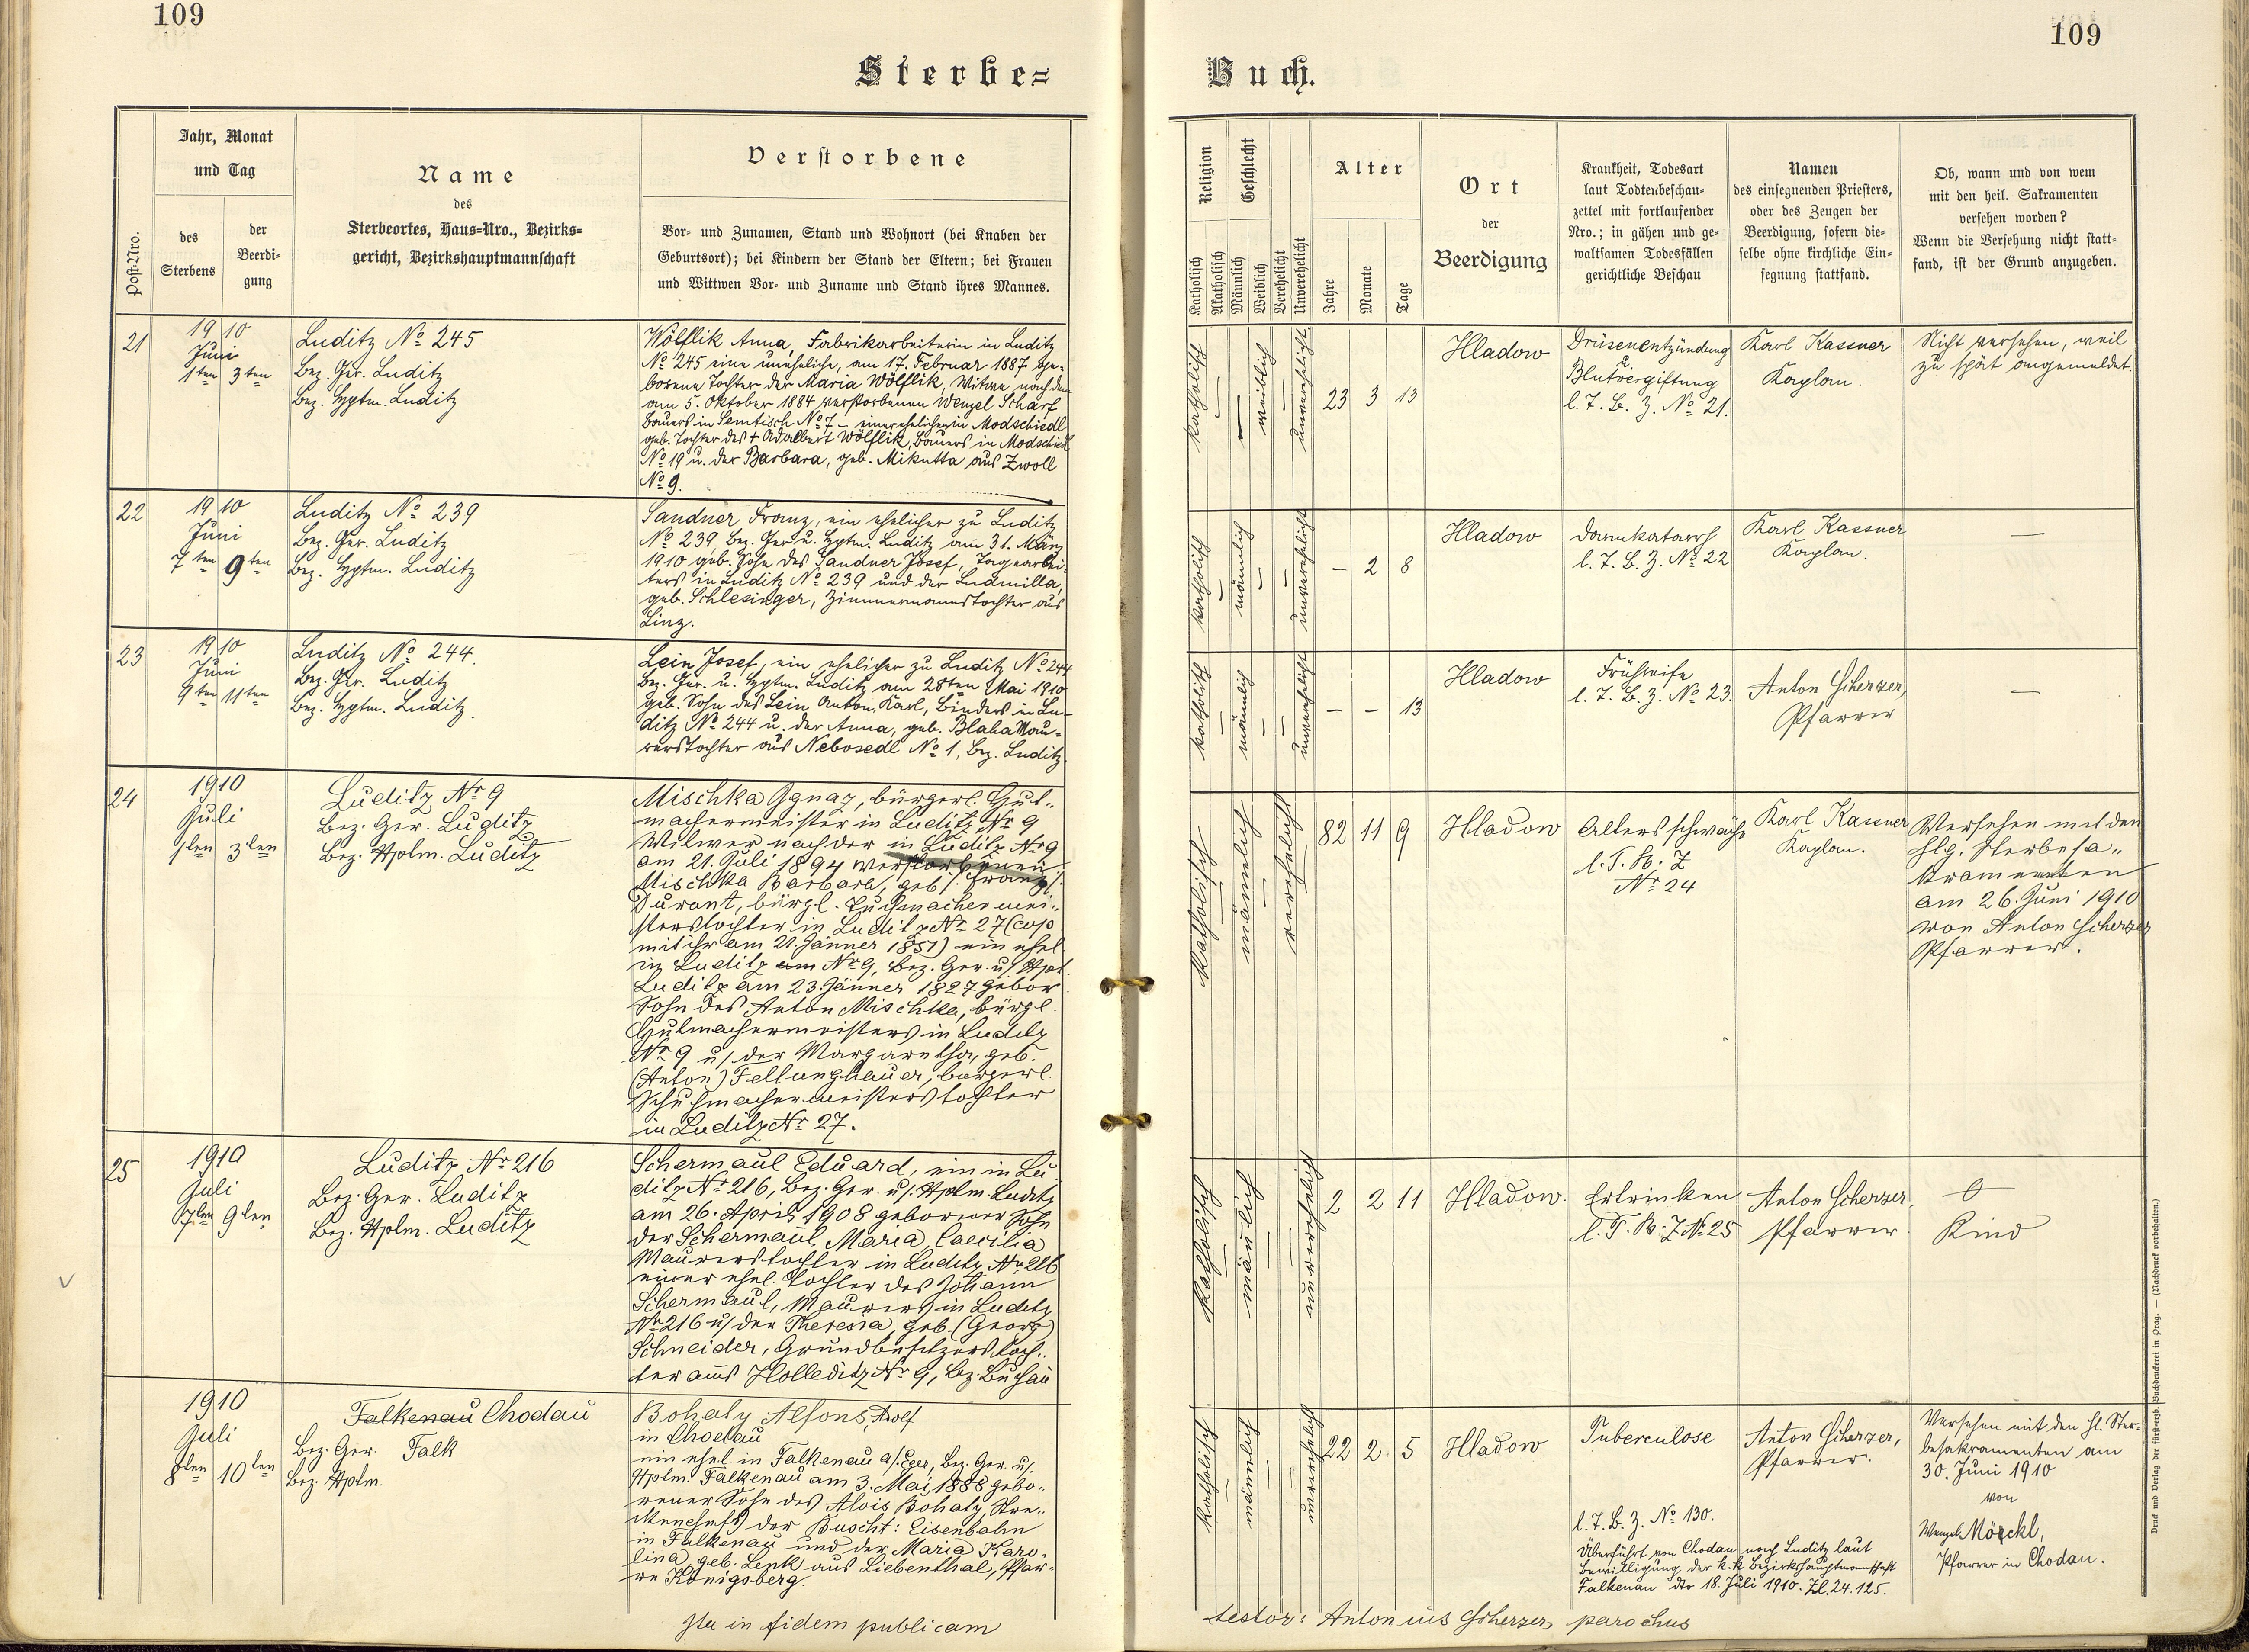 109
109
Sterbe=
Buch.
Post-Nro.
Jahr, Monat
und Tag
des
Sterbens
der
Beerdi-
gung
Name
des
Sterbeortes, Haus=Nro., Bezirks=
gericht, Bezirkshauptmannschaft
Verstorbene
Vor- und Zunamen, Stand und Wohnort (bei Knaben der
Geburtsort); bei Kindern der Stand der Eltern; bei Frauen
und Wittwen Vor- und Zuname und Stand ihres Mannes.
Religion
Katholisch
Akatholisch
Geschlecht
Männlich
Weiblich
Verehelicht
Unverehelicht
Alter
Jahre
Monate
Tage
Ort
der
Beerdigung
Krankheit, Todesart
laut Todtenbeschau-
zettel mit fortlaufender
Nro.; in gähen und ge-
waltsamen Todesfällen
gerichtliche Beschau
Namen
des einsegnenden Priesters,
oder des Zeugen der
Beerdigung, sofern die-
selbe ohne kirchliche Ein-
segnung stattfand.
Ob, wann und von wem
mit den heil. Sakramenten
versehen worden?
Wenn die Versehung nicht statt-
fand, ist der Grund anzugeben.
21
1910
Juni
1ten 3ten
Luditz No 245
Bez. Ger. Luditz
Bez. Hptm. Luditz
Wölflik Anna, Fabrikarbeiterin in Luditz
No 245 eine uneheliche, am 17. Februar 1887 ge-
borene Tochter der Maria Wölflik, Witwe nach dem
am 5. Oktober 1884 verstorbenen Wenzel Scharf
Bauers in Semtisch No 7 – einer ehelichen in Modschiedl
geb. Tochter des + Adalbert Wölflik, Bauers in Modschiedl
No 19 u. der Barbara, geb. Mikutta aus Zwoll
No 9.
katholisch
weiblich
unverehelicht
23 3 13
Hladow
Drüsenentzündung
u.
Blutvergiftung
l. T. B. Z. No 21.
Karl Kassner
Kaplan.
Nicht versehen, weil
zu spät angemeldet.
22
1910
Juni
7ten 9ten
Luditz No 239
Bez. Ger. Luditz
Bez. Hptm. Luditz
Sandner Franz, ein ehelicher zu Luditz
No 239 Bez. Ger. u. Hptm. Luditz am 31. März
1910 geb. Sohn des Sandner Josef, Tagearbei-
ters in Luditz No 239 und der Ludmilla,
geb. Schlesinger, Zimmermannstochter aus
Linz.
katholisch
männlich
unverehelicht
– 2 8
Hladow
Darmkatarrh
l. T. B. Z. No 22
Karl Kassner
Kaplan.
—
23
1910
Juni
9ten 11ten
Luditz No 244.
Bez. Ger. Luditz
Bez. Hptm. Luditz.
Lein Josef, ein ehelicher zu Luditz No 244
Bez. Ger. u. Hptm. Luditz am 28ten Mai 1910
geb. Sohn des Lein Anton, Karl, Binders in Lu-
ditz No 244 u. der Anna, geb. Blaha Mau-
rerstochter aus Nebosedl No 1, Bez. Luditz.
katholisch
männlich
unverehelicht
– – 13
Hladow
Frühreife
l. T. B. Z. No 23.
Anton Scherzer,
Pfarrer
—
24
1910
Juli
1ten 3ten
Luditz Nr 9
Bez. Ger. Luditz
Bez. Hptm. Luditz
Mischka Ignaz, bürgerl. Hut-
machermeister in Luditz Nr 9
Witwer nach der in Luditz Nr 9
am 21. Juli 1894 verstorbenen
Mischka Barbara, geb. (Franz)
Durant, bürgl. Tuchmachermei-
sterstochter in Luditz Nr 27 (cop.
mit ihr am 21. Jänner 1851) ein ehel.
in Luditz am Nr 9, Bez. Ger. u. Hpt.
Luditz am 23. Jänner 1827 gebor
Sohn des Anton Mischka, bürgl.
Hutmachermeisters in Luditz
Nr 9 u. der Margaretha, geb.
(Anton) Fellunghauer, bürgerl.
Schuhmachermeisterstochter
in Luditz Nr 27.
katholisch
männlich
verehelicht
82 11 9
Hladow
Altersschwäche
l. T. B. Z
Nr 24
Karl Kassner
Kaplan.
Versehen mit den
hlg. Sterbesa-
kramenten
am 26. Juni 1910
von Anton Scherzer
Pfarrer.
25
1910
Juli
7ten 9ten
Luditz Nr 216
Bez. Ger. Luditz
Bez. Hptm. Luditz
Schermaul Eduard, ein in Lu
ditz Nr 216, Bez. Ger. u. Hptm. Luditz
am 26. April 1908 geborener Sohn
der Schermaul Maria, Caecilia
Maurerstochter in Luditz Nr 216
einer ehel. Tochter des Johann
Schermaul, Maurers in Luditz
Nr 216 u. der Theresia, geb. (Georg)
Schneider, Grundbesitzerstoch-
ter aus Holleditz Nr 9, Bz. Buchau
katholisch
männlich
unverehelicht
2 2 11
Hladow.
Ertrinken
l. T. B. Z Nr 25
Anton Scherzer,
Pfarrer
Kind
1910
Juli
8ten 10ten
Falkenau Chodau
Bez. Ger. Falk
Bez. Hptm.
Bohaty Alfons, Adolf
in Chodau
ein ehel. in Falkenau a/. Eger, Bez. Ger. u.
Hptm. Falkenau am 3. Mai 1888 gebo-
rener Sohn des Alois Bohaty,
der Buscht: Eisenbahn
in Falkenau und der Maria Karo-
lina, geb. Lenk aus Liebenthal, Pfar-
re Königsberg.
katholisch
männlich
unverehelicht
22 2 5
Hladow
Tuberculose
l. T. B. Z. No 130.
Überführt von Chodau nach Luditz laut
Bewilligung der k. k. Bezirkshauptmannschaft
Falkenau dto 18. Juli 1910. Zl. 24.125.
Anton Scherzer,
Pfarrer.
Versehen mit den hl. Ster-
besakramenten am
30. Juni 1910
von
Wenzel Möckl,
Pfarrer in Chodau.
Ita in fidem publicam
testor: Antonius Scherzer, parochus
Druck und Verlag der fürsterzb. Buchdruckerei in Prag. — (Nachdruck vorbehalten.)